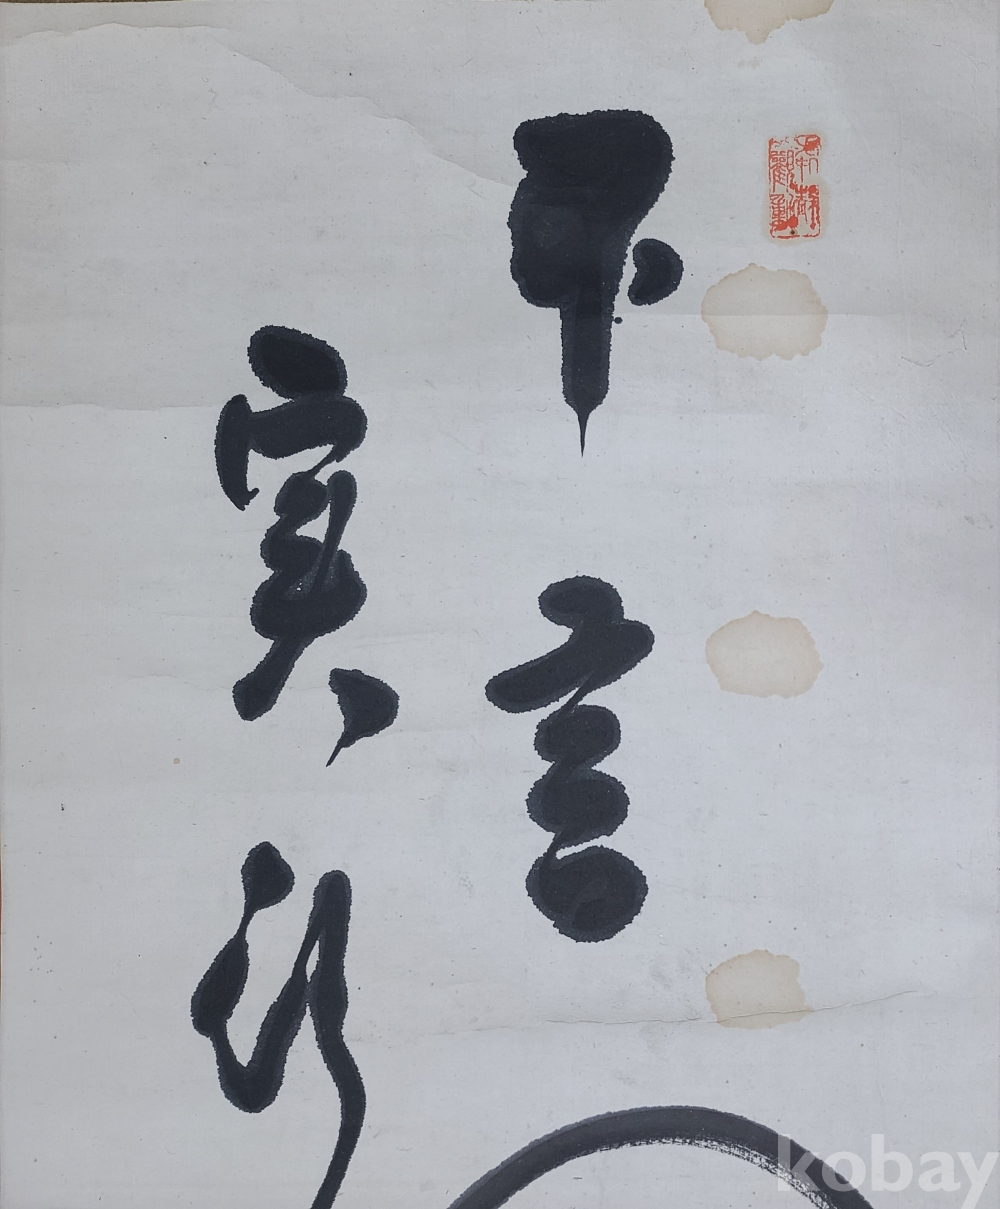 不言
實行
kobay